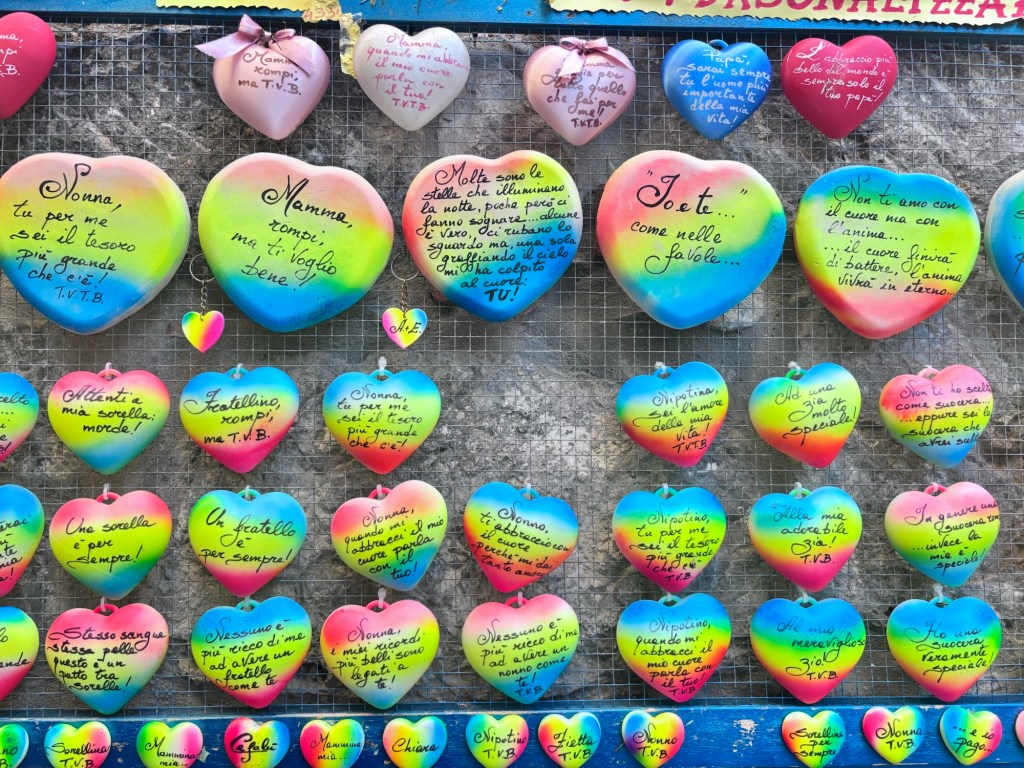 Mamma
rompi,
ma T.V.B.
Mamma,
quando mi abbracci
il mio cuore
parla con
il tuo!
T.V.T.B.
tutto quello
che fai per
me!
T.V.T.B.
Papà,
sarai sempre
tu l'uomo più
importante
della mia
vita!
L'abbraccio più
bello del mondo è
sempre solo il
tuo papà!
Nonna,
tu per me
sei il tesoro
più grande
che c'è!
T.V.T.B.
Mamma,
rompi,
ma ti voglio
bene!
Molte sono le
stelle che illuminano
la notte, poche però ci
fanno sognare...alcune
è vero, ci rubano lo
sguardo ma, una sola
graffiando il cielo
mi ha colpito
al cuore:
TU!
"Io e te"...
come nelle
favole...
Non ti amo con
il cuore ma con
l'anima...
...il cuore finirà
di battere, l'anima
vivrà in eterno...
A+E.
Attenti a
mia sorella:
morde!
Fratellino,
rompi,
ma T.V.B.
Nonna,
tu per me
sei il tesoro
più grande
che c'è!
Nipotina,
sei l'amore
della mia
vita!
T.V.T.B
Ad una
zia
molto
speciale!
Non ti ho scelto
come suocera...
...eppure sei la
suocera che
avrei
Una sorella
è per
sempre!
Un fratello
è
per sempre!
Nonna,
quando mi
abbracci il mio
cuore parla
con il
tuo!
Nonno,
ti abbraccio con
il cuore
perché mi dai
tanto amore
Nipotino,
tu per me
sei il tesoro
più grande
che c'è!
T.V.B
Alla mia
adorabile
zia!
T.V.B
In genere una
suocera
...invece la
mia è
speciale!
Stesso sangue
stessa pelle
questo è un
patto tra
Sorelle!
Nessuno è
più ricco di me
ad avere un
fratello
come te
Nonna,
i miei ricordi
più belli sono
legati a
te!
Nessuno è
più ricco di me
ad avere un
nonno come
te!
T.V.B
Nipotino,
quando mi
abbracci il mio
cuore parla
con il tuo!
T.V.B
Al mio
meraviglioso
zio!
T.V.B
Ho una
suocera
veramente
speciale!
Sorellina
T.V.B
Mammina
mia...
Papalì
Mammina
mia...
Chiara
Nipotino
T.V.B
Zietta
T.V.B
Nonno
T.V.B
Sorelline
per
sempre
Nonna
T.V.B
...e io
pago...